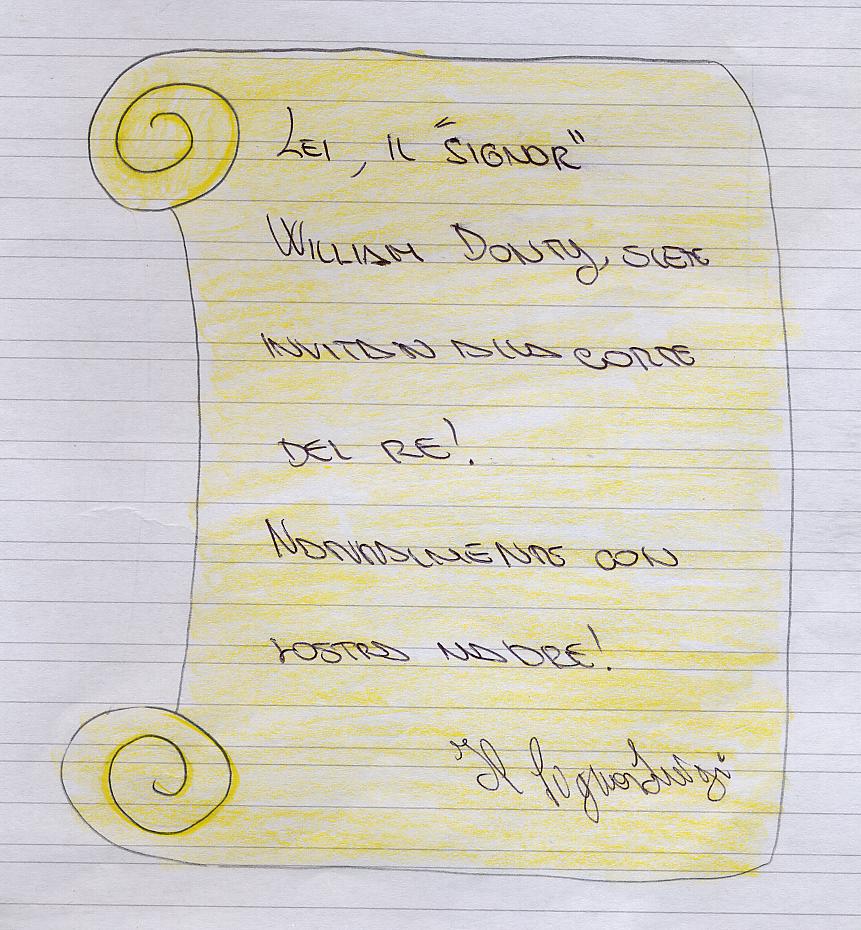 LEI, IL "SIGNOR"
WILLIAM DONTY, SIETE
INVITATI ALLA CORTE
DEL RE!
NATURALMENTE CON
VOSTRA MADRE!
Il Signor Luigi